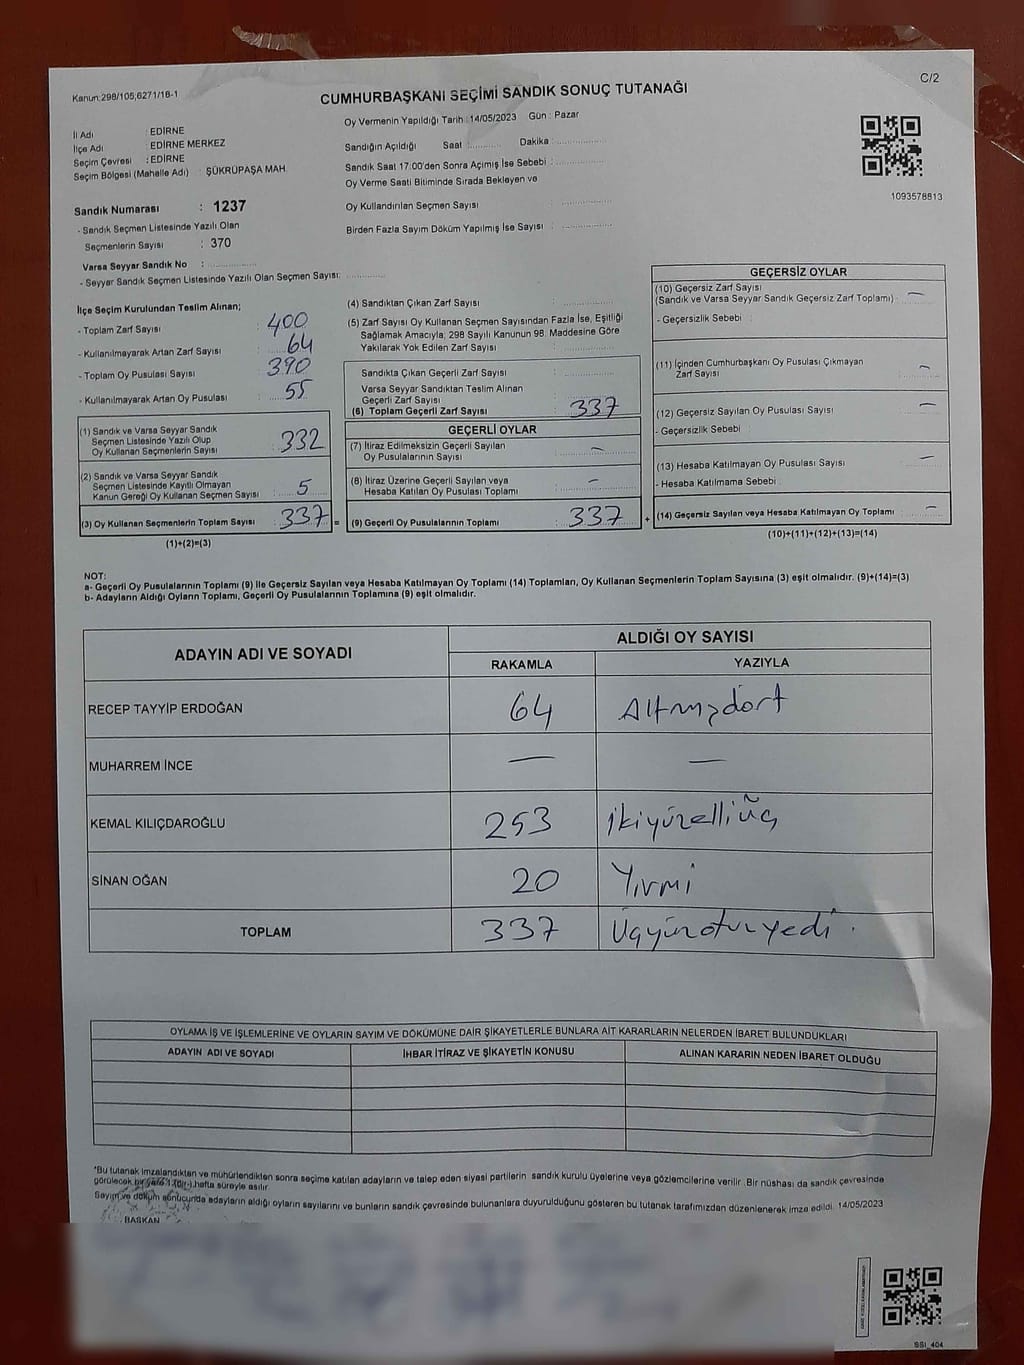 C/2
Kanun:298/105;6271/16-1
CUMHURBAŞKANI SEÇİMİ SANDIK SONUÇ TUTANAĞI
Oy Vermenin Yapıldığı Tarih :14/05/2023 Gün : Pazar
İl Adı : EDİRNE
İlçe Adı : EDİRNE MERKEZ
Seçim Çevresi : EDİRNE
Seçim Bölgesi (Mahalle Adı) : ŞÜKRÜPAŞA MAH.
Sandığın Açıldığı Saat : Dakika :
Sandık Saat 17:00'den Sonra Açımış İse Sebebi :
Oy Verme Saati Bitiminde Sırada Bekleyen ve
Oy Kullandırılan Seçmen Sayısı :
Birden Fazla Sayım Döküm Yapılmış İse Sayısı :
1093578813
Sandık Numarası : 1237
- Sandık Seçmen Listesinde Yazılı Olan
Seçmenlerin Sayısı : 370
Varsa Seyyar Sandık No :
- Seyyar Sandık Seçmen Listesinde Yazılı Olan Seçmen Sayısı:
İlçe Seçim Kurulundan Teslim Alınan;
- Toplam Zarf Sayısı : 400
- Kullanılmayarak Artan Zarf Sayısı : 64
- Toplam Oy Pusulası Sayısı : 390
- Kullanılmayarak Artan Oy Pusulası : 55
(1) Sandık ve Varsa Seyyar Sandık
Seçmen Listesinde Yazılı Olup
Oy Kullanan Seçmenlerin Sayısı : 332
(2) Sandık ve Varsa Seyyar Sandık
Seçmen Listesinde Kayıtlı Olmayan
Kanun Gereği Oy Kullanan Seçmen Sayısı : 5
(3) Oy Kullanan Seçmenlerin Toplam Sayısı : 337 =
(1)+(2)=(3)
(4) Sandıktan Çıkan Zarf Sayısı :
(5) Zarf Sayısı Oy Kullanan Seçmen Sayısından Fazla İse, Eşitliği
Sağlamak Amacıyla; 298 Sayılı Kanunun 98. Maddesine Göre
Yakılarak Yok Edilen Zarf Sayısı :
Sandıkta Çıkan Geçerli Zarf Sayısı :
Varsa Seyyar Sandıktan Teslim Alınan
Geçerli Zarf Sayısı :
(6) Toplam Geçerli Zarf Sayısı : 337
GEÇERLİ OYLAR
(7) İtiraz Edilmeksizin Geçerli Sayılan
Oy Pusulalarının Sayısı : —
(8) İtiraz Üzerine Geçerli Sayılan veya
Hesaba Katılan Oy Pusulası Toplamı : —
(9) Geçerli Oy Pusulalarının Toplamı : 337 +
GEÇERSİZ OYLAR
(10) Geçersiz Zarf Sayısı
(Sandık ve Varsa Seyyar Sandık Geçersiz Zarf Toplamı) : —
- Geçersizlik Sebebi :
(11) İçinden Cumhurbaşkanı Oy Pusulası Çıkmayan
Zarf Sayısı : —
(12) Geçersiz Sayılan Oy Pusulası Sayısı : —
- Geçersizlik Sebebi :
(13) Hesaba Katılmayan Oy Pusulası Sayısı : —
- Hesaba Katılmama Sebebi :
(14) Geçersiz Sayılan veya Hesaba Katılmayan Oy Toplamı : —
(10)+(11)+(12)+(13)=(14)
NOT:
a- Geçerli Oy Pusulalarının Toplamı (9) ile Geçersiz Sayılan veya Hesaba Katılmayan Oy Toplamı (14) Toplamları, Oy Kullanan Seçmenlerin Toplam Sayısına (3) eşit olmalıdır. (9)+(14)=(3)
b- Adayların Aldığı Oyların Toplamı, Geçerli Oy Pusulalarının Toplamına (9) eşit olmalıdır.
ADAYIN ADI VE SOYADI
ALDIĞI OY SAYISI
RAKAMLA YAZIYLA
RECEP TAYYİP ERDOĞAN 64 Altmışdört
MUHARREM İNCE — —
KEMAL KILIÇDAROĞLU 253 ikiyüzelliüç
SİNAN OĞAN 20 Yirmi
TOPLAM 337 Üçyüzotuzyedi
OYLAMA İŞ VE İŞLEMLERİNE VE OYLARIN SAYIM VE DÖKÜMÜNE DAİR ŞİKAYETLERLE BUNLARA AİT KARARLARIN NELERDEN İBARET BULUNDUKLARI
ADAYIN ADI VE SOYADI İHBAR İTİRAZ VE ŞİKAYETİN KONUSU ALINAN KARARIN NEDEN İBARET OLDUĞU
*Bu tutanak imzalandıktan ve mühürlendikten sonra seçime katılan adayların ve talep eden siyasi partilerin sandık kurulu üyelerine veya gözlemcilerine verilir. Bir nüshası da sandık çevresinde
görülecek bir yere 1 (bir) hafta süreyle asılır.
Sayım ve döküm sonucunda adayların aldığı oyların sayılarını ve bunların sandık çevresinde bulunanlara duyurulduğunu gösteren bu tutanak tarafımızdan düzenlenerek imza edildi. 14/05/2023
BAŞKAN
SSI_404